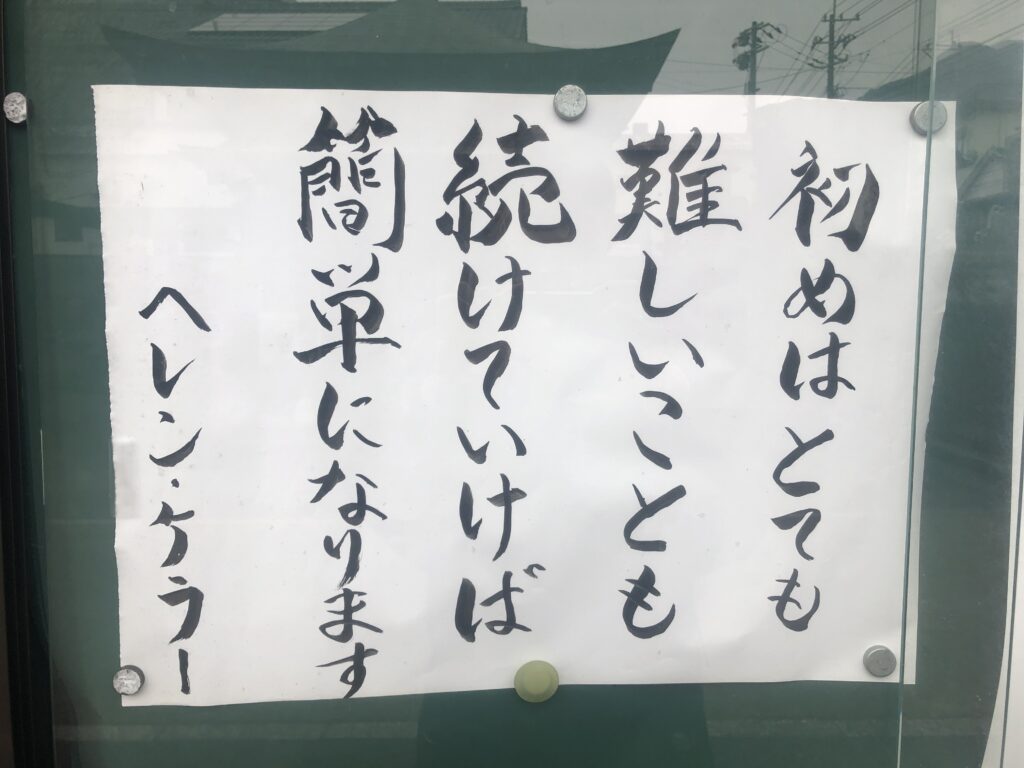 初めはとても
難しいことも
続けていけば
簡単になります
ヘレン・ケラー